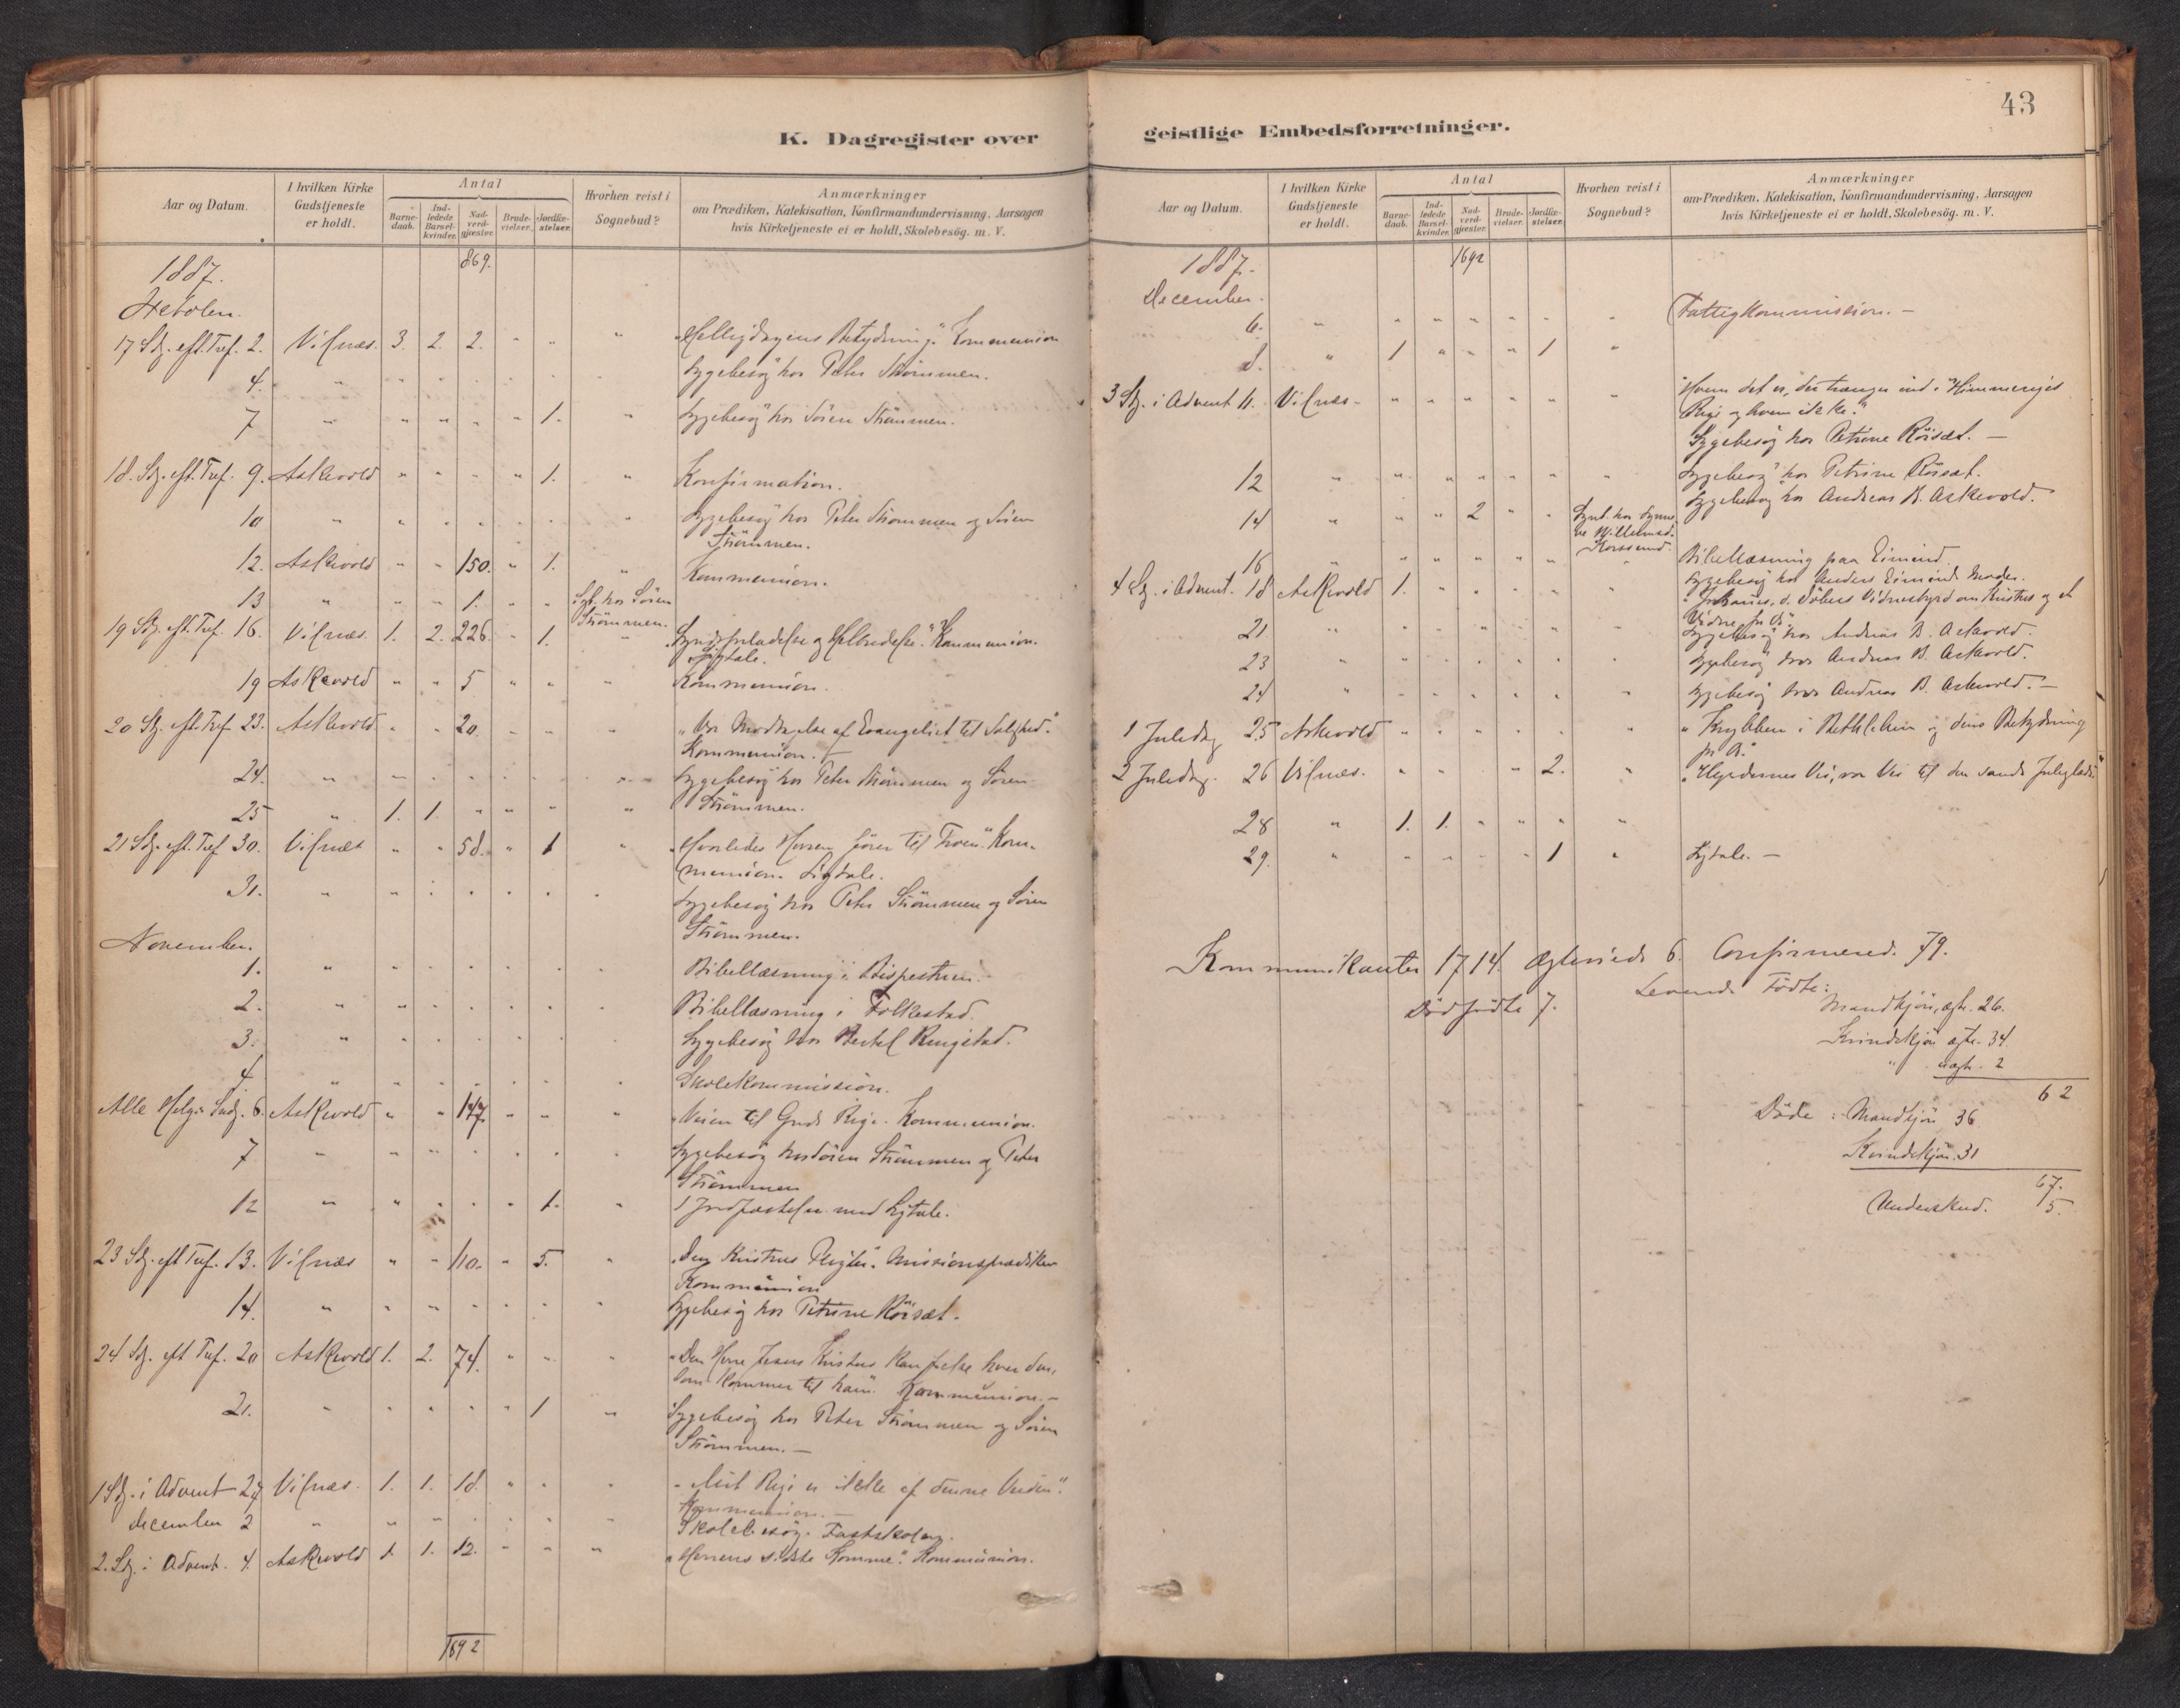 K. Dagregister over
Aar og Datum.
I hvilken Kirke Gudstjeneste er holdt.
Antal
Barnedaab.
Indledede Barselkvinder.
Nadverdgjæster.
Brudevielser.
Jordfæstelser.
Hvorhen reist i Sognebud?
Anmærkninger
om Prædiken, Katekisation, Konfirmandundervisning, Aarsagen
hvis Kirketjeneste ei er holdt, Skolebesøg. m. V.
1887. 869.
17 Sdg. eft. Tref. 2. Vilnæs. 3. 2. 2. " " " Helligdagens Betydning." Kommunion
4. " " " " " " " Sygebesøg hos Peter Strømmen.
7 " " " " " 1. " Sygebesøg hos Søren Strømmen.
18. Sdg. eft. Tref. 9. Askvold " " " " 1. " Konfirmation.
10 " " " " " " " Sygebesøg hos Peter Strømmen og Søren
Strømmen.
12. Askvold " " 150. " 1. " Kommunion.
13 " " " 1. " " Sgb. hos Søren
Strømmen.
19 Sdg. eft. Tref. 16. Vilnæs. 1. 2. 226. " 1. " Syndsforladelse og Helbredelse." Kommunion.
Ligtale.
19 Askvold " " 5 " " " Kommunion.
20 Sdg. eft. Tref. 23. Askvold " " 20. " " " "Vor Modtagelse af Evangeliet til Salighed."
Kommunion. —
24. " " " " " " " Sygebesøg hos Peter Strømmen og Søren
Strømmen.
25 " 1. 1. " " " "
21 Sdg. eft. Tref. 30. Vilnæs " " 58. " 1 " "Hvorledes Herren fører til Troen." Kom-
munion. Ligtale.
31. " " " " " " " Sygebesøg hos Peter Strømmen og Søren
Strømmen.
November.
1. " " " " " " " Bibellæsning i
2. " " " " " " " Bibellæsning i Folkestad.
3. " " " " " " " Sygebesøg hos Bertel Ringstad.
4. " " " " " " " Skolekommission.
Alle Helg. Sndg. 6. Askvold " " 147. " " " "Veien til Guds Rige. Kommunion.
7 " " " " " " " Sygebesøg hos Søren Strømmen og Peter
Strømmen
12 " " " " " 1. " 1 Jordfæstelse med Ligtale.
23 Sdg. eft Tref. 13. Vilnæs " " 110. " 5. " Missionsprædiken
Kommunion
14. " " " " " " " Sygebesøg hos Petrine Röisæt.
24 Sdg. eft Tref. 20 Askvold 1. 2. 74. " " " "Den Herre Jesus Kristus kan frelse hver den,
som kommer til ham." Kommunion. —
21. " " " " " 1 " Sygebesøg hos Peter Strømmen og Søren
Strømmen. —
1 Sdg. i Advent 27 Vilnæs. 1. 1. 18. " " " "Mit Rige er ikke af denne Verden."
Kommunion. —
December 2 " " " " " " " Skolebesøg. Fastskolen.
2. Sdg. i Advent. 4. Askvold 1. 1. 12. " " " "Herrens sidste Komme". Kommunion.
1692
43
geistlige Embedsforretninger.
Aar og Datum.
I hvilken Kirke Gudstjeneste er holdt.
Antal
Barnedaab.
Indledede Barselkvinder.
Nadverdgjæster.
Brudevielser.
Jordfæstelser.
Hvorhen reist i Sognebud?
Anmærkninger
om Prædiken, Katekisation, Konfirmandundervisning, Aarsagen
hvis Kirketjeneste ei er holdt, Skolebesög. m. V.
1887. 1692
December.
6. " " " " " " " Fattigkommission. —
8. " 1 " " " 1 "
3 Sdg. i Advent 11. Vilnæs " " " " " " "Hvem det er, der trænger ind i Himmeriges
Rige og hvem ikke."
Sygebesøg hos Petrine Röisæt. —
12 " " " " " " " Sygebesøg hos Petrine Röisæt.
Sygebesøg hos Andreas B. Askevold.
14 " " " 2 " "
Korssund.
16 " " " " " " " Bibellæsning paa Eimind.
Sygebesøg hos Anders Eiminds Moder.
4 Sdg. i Advent. 18 Askvold 1. " " " " " "Johannes d. Døbers Vidnesbyrd om Kristus og et
21. " " " " " " " Sygebesøg hos Andreas B. Askevold.
23 " " " " " " " Sygebesøg hos Andreas B. Askevold.
24 " " " " " " " Sygebesøg hos Andreas B. Askevold. —
1 Juledag 25 Askevold " " " " " " "Krybben i Bethlehem og dens Betydning
for os."
2 Juledag. 26 Vilnæs. " " " " 2. " "Hyrdernes Vei, vor Vei til den sande Juleglæde"
28 " 1. 1. " " " "
29. " " " " " 1 " Ligtale. —
Kommunikanter 1714. Ægteviede 6. Confirmered. 79.
Dødfødte 7. Levende Fødte:
Mandkjön, ægte. 26.
Kvindekjön ægte. 34
" uægte. 2
62
Døde: Mandkjön 36
Kvindekjön. 31
67.
Underskud. 5.